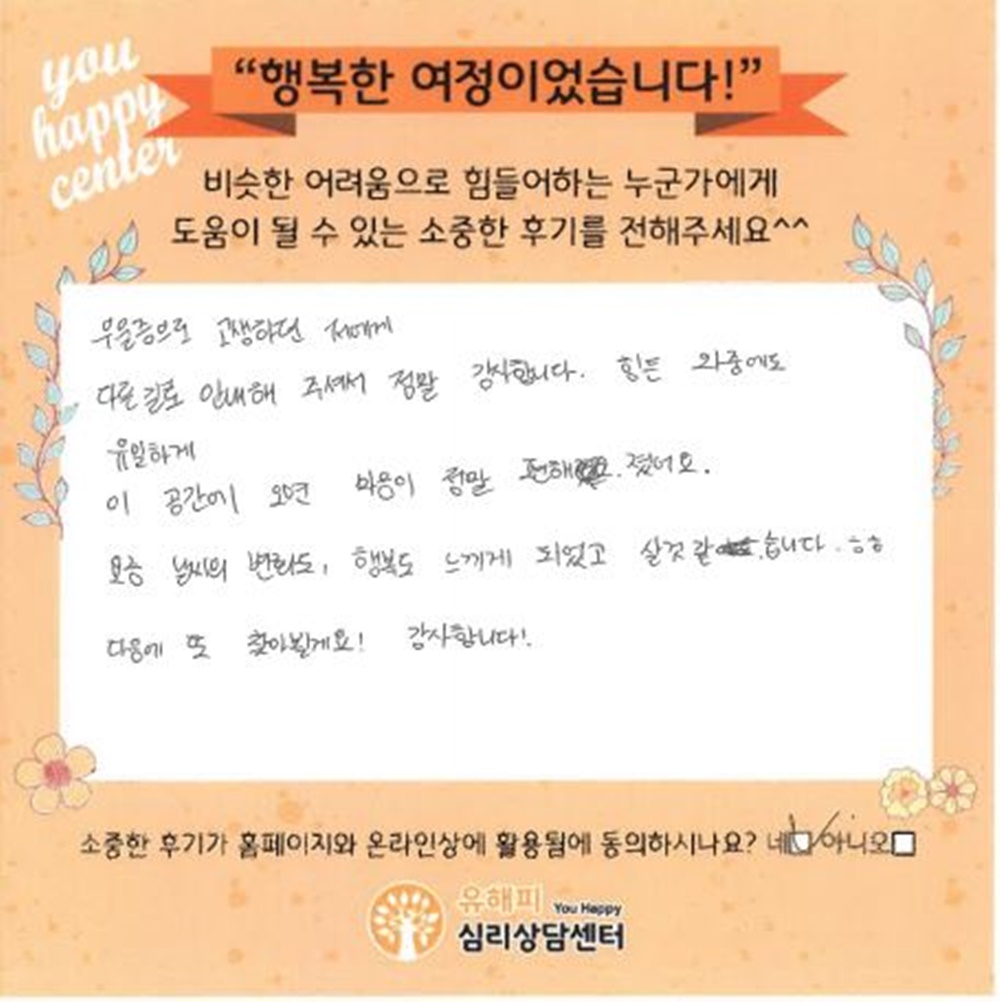 you
happy
center
“행복한 여정이었습니다!”
비슷한 어려움으로 힘들어하는 누군가에게
도움이 될 수 있는 소중한 후기를 전해주세요^^
우울증으로 고생하던 저에게
다른길로 안내해 주셔서 정말 감사합니다. 힘든 와중에도
유일하게
이 공간에 오면 마음이 정말 편해 졌어요.
요즘 날씨의 변화도, 행복도 느끼게 되었고 살것 같습니다. ㅎㅎ
다음에 또 찾아뵐게요! 감사합니다!
소중한 후기가 홈페이지와 온라인상에 활용됨에 동의하시나요? 네 아니오
유해피 You Happy
심리상담센터